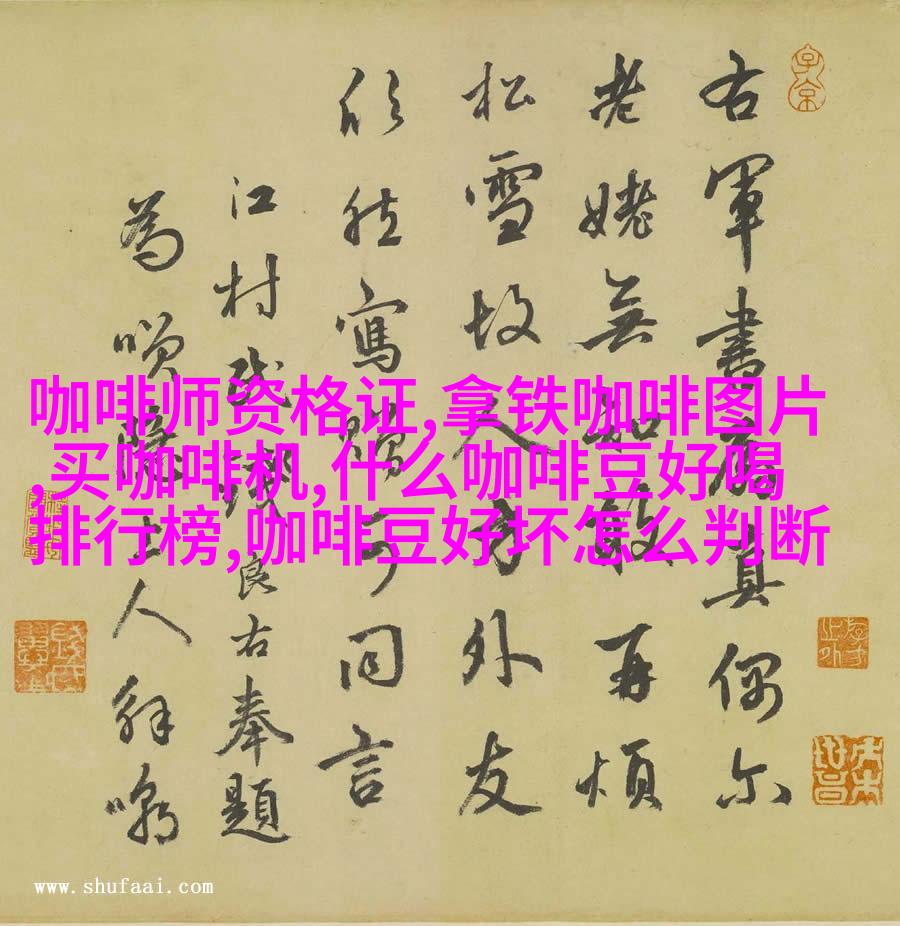 右軍書扇真偶尔
老姥無知敢再煩
松雪故人方外友
欣然寫贈可同言
江村良右奉題
為人
咖啡师资格证,拿铁咖啡图片
,买咖啡机,什么咖啡豆好喝
排行榜,咖啡豆好坏怎么判断
www.shufaai.com